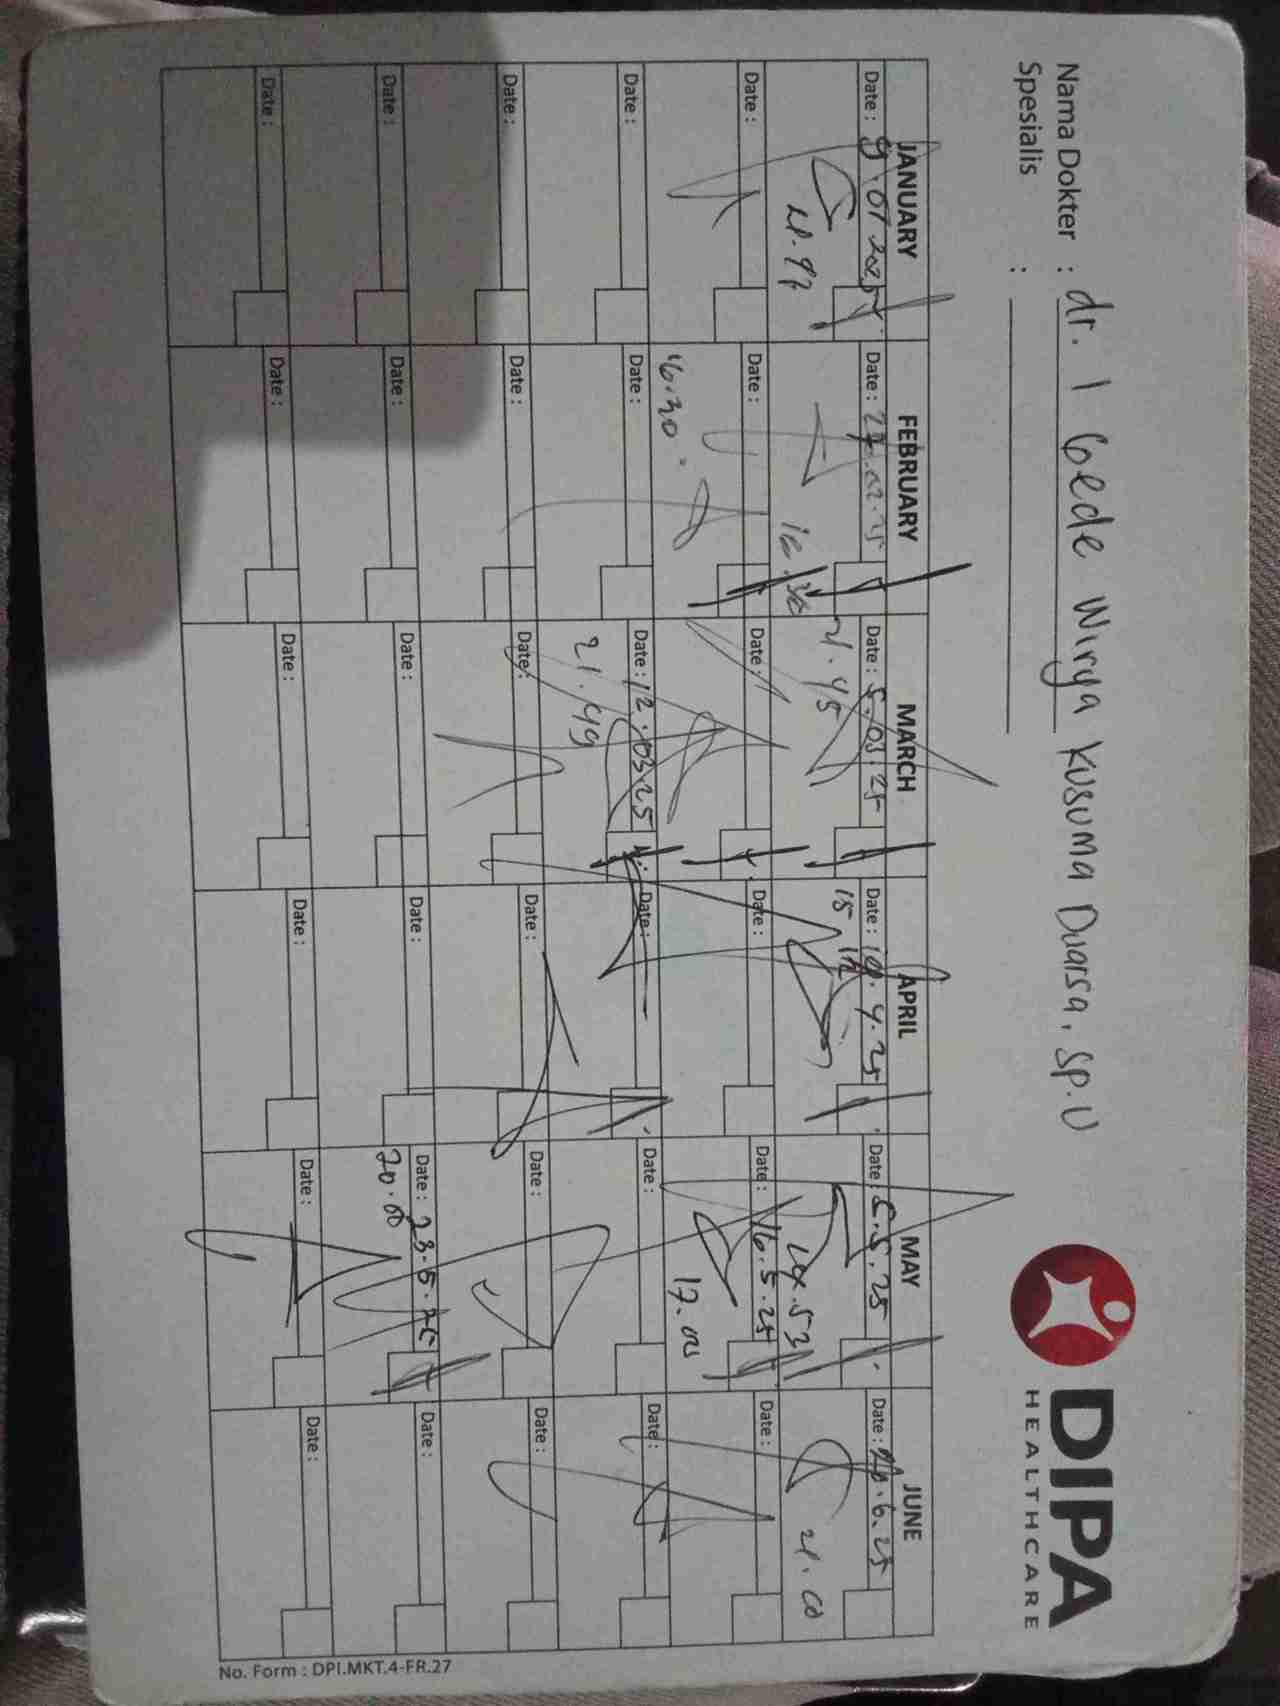 Nama Dokter : dr. I Gede Wirya Kusuma Duarsa. Sp.U
Spesialis :
DIPA
HEALTHCARE
JANUARY FEBRUARY MARCH APRIL MAY JUNE
Date : 9.01 2025 Date : 27.02.25 Date : 5.03.25 Date : 4.25 Date : 5.5.25 Date : 6.25
21.45 21.00
Date : Date : Date : Date : Date : 16.5.25 Date :
16.30 17.00
Date : Date : Date : 12.03.25 Date : Date : Date :
21.49
Date : Date : Date : Date : Date : Date :
Date : Date : Date : Date : Date : 23.5.25 Date :
20.00
Date : Date : Date : Date : Date : Date :
No. Form : DPI.MKT.4-FR.27